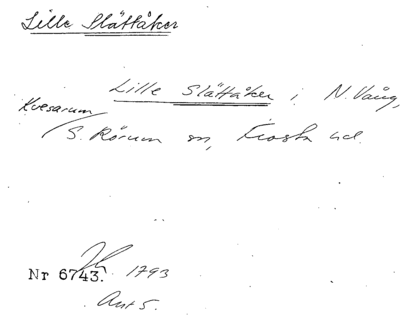 Lille Slättåker
Lille Slättåker i N. Vång,
Kvesarum
S. Rörum sn, Frosta hd.
Nr 6743. 1793
Akt 5.